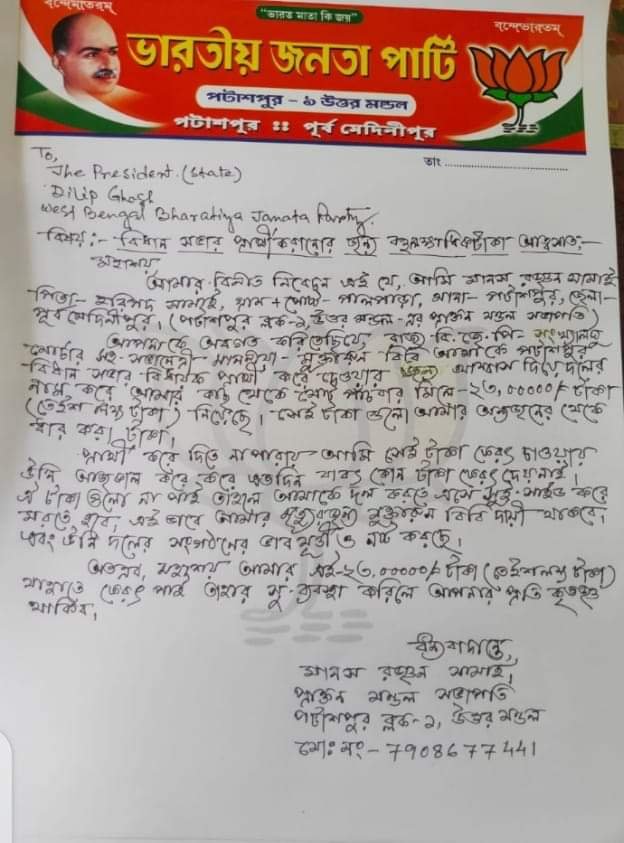 বন্দেমাতরম্
"ভারত মাতা কি জয়"
বন্দেভারতম্
ভারতীয় জনতা পার্টি
পটাশপুর - ১ উত্তর মন্ডল
পটাশপুর :: পূর্ব মেদিনীপুর
তাং
To,
The President. (State)
Dilip Ghosh
West Bengal Bharatiya Janata Party.
বিষয় :- বিধান সভার প্রার্থী করানোর জন্য টাকা আত্মসাৎ :-
মহাশয়
আমার বিনীত নিবেদন এই যে, আমি মানস রঞ্জন সামাই
পিতা- হরিপদ সামাই, গ্রাম + পোষ্ট - পালপাড়া, থানা- পটাশপুর, জেলা-
পূর্ব মেদিনীপুর। (পটাশপুর ব্লক-১, উত্তর মন্ডল -এর প্রাক্তন মন্ডল সভাপতি)
আপনাকে অবগত করিতেছি যে, রাজ্য বি. জে. পি- সংখ্যালঘু
মোর্চার সহ-সভানেত্রী বিবি আমাকে পটাশপুর
বিধান সভার বিধায়ক প্রার্থী করে দেওয়ার জন্য আশ্বাস দিয়ে দলের
নাম করে আমার কাছ থেকে মোট পাঁচবার মিলে - ২৩,০০০০০/- টাকা
(তেইশ লক্ষ টাকা) নিয়েছে। সেই টাকা গুলো আমার থেকে
ধার করা টাকা।
প্রার্থী করে দিতে না পারায় আমি সেই টাকা ফেরৎ চাওয়ায়
উনি আজকাল করে করে এতদিন যাবৎ কোন টাকা ফেরৎ দেয় নাই।
ঐ টাকা গুলো না পাই তাহলে আমাকে দল করতে এসে সুই-সাইড করে
মরতে হবে, এই ভাবে আমার মৃত্যুর জন্য বিবি দায়ী থাকবে,
এবং উনি দলের সংগঠনের ভাব মূর্তী ও নষ্ট করছে।
অতএব, মহাশয় আমার এই- ২৩,০০০০০/- টাকা (তেইশ লক্ষ টাকা)
যাহাতে ফেরৎ পাই তাহার সু-ব্যবস্থা করিলে আপনার প্রতি কৃতজ্ঞ
থাকিব,
মানস রঞ্জন সামাই,
প্রাক্তন মন্ডল সভাপতি
পটাশপুর ব্লক-১, উত্তর মন্ডল
মোঃ নং - 7908677441